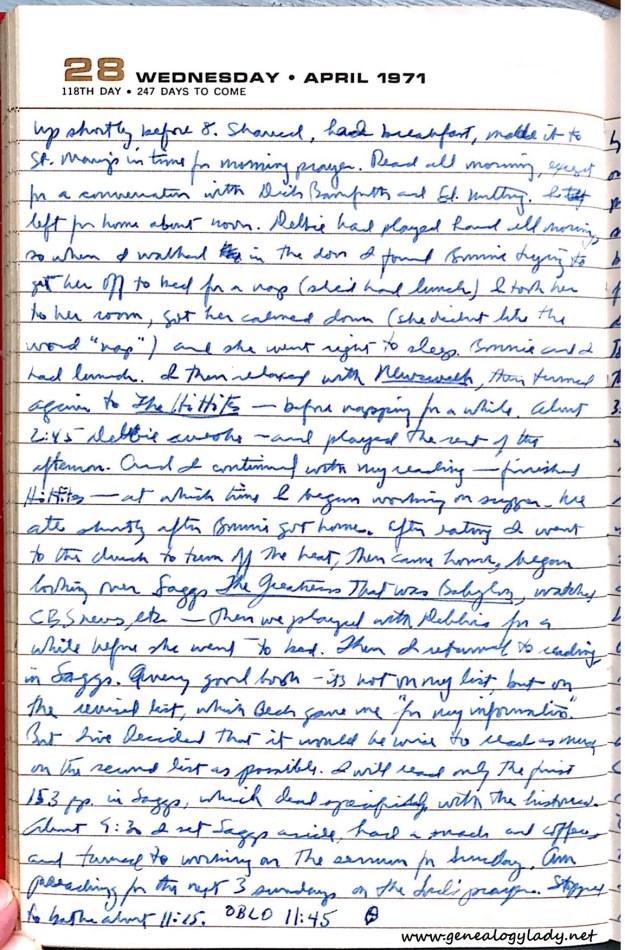 28 WEDNESDAY • APRIL 1971
118TH DAY • 247 DAYS TO COME
Up shortly before 8. Shaved, had breakfast, made it to
St. Mary's in time for morning prayer. Read all morning, except
for a conversation with Dick and Ed.
left for home about noon. Debbie had played hard all morning,
so when I walked in the door I found Bonnie trying to
get her off to bed for a nap (she'd had lunch) I took her
to her room, got her calmed down (she didn't like the
word "nap") and she went right to sleep. Bonnie and I
had lunch. I then relaxed with Newsweek, then turned
again to The Hittites — before napping for a while. About
2:45 Debbie awoke – and played the rest of the
afternoon. And I continued with my reading — finished
Hittites — at which time I began working on supper. We
ate shortly after Bonnie got home. After eating I went
to the church to turn off the heat, then came home, began
looking over Saggs The Greatness That was Babylon, watched
CBS news, etc — then we played with Debbie for a
while before she went to bed. Then I returned to reading
in Saggs. A very good book – its not on my list, but on
the revised list, which Beck gave me "for my information".
But I've decided that it would be wise to read as many
on the second list as possible. I will read only the first
153 pp. in Saggs, which deal specifically with the
About 9:30 I set Saggs aside, had a snack and coffee,
and turned to working on the sermon for Sunday. Am
preaching for the next 3 sundays on the Lord's prayer. Stopped
to bathe about 11:15. OBLO 11:45
www.genealogylady.net